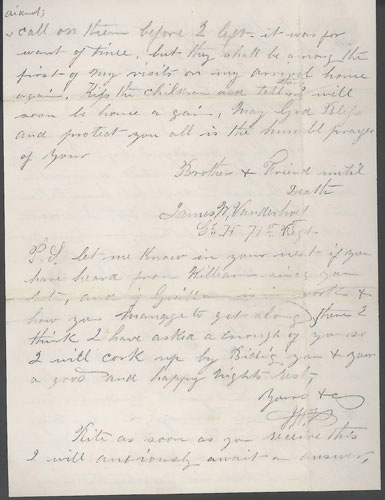 call on them before I left it was for
want of time, but they shall be among the
first of my visits on my arrival home
again. Kiss the children and tell I will
soon be home a gain, May God Bless
and protect you all is the humbl prayer
of your
Brother & Friend until
Death
James W. Vanderhoef
Co. H. 71st Regt.
P.S. let me know in your next if you
have heard from William since you
let, and if is in &
how you manage to get along there I
think I have asked a enough of you so
I will cork up by Biding you &
a good and happy nights rest,
Yours &c
Rite as soon as you receive this
I will anxiously await an answer,